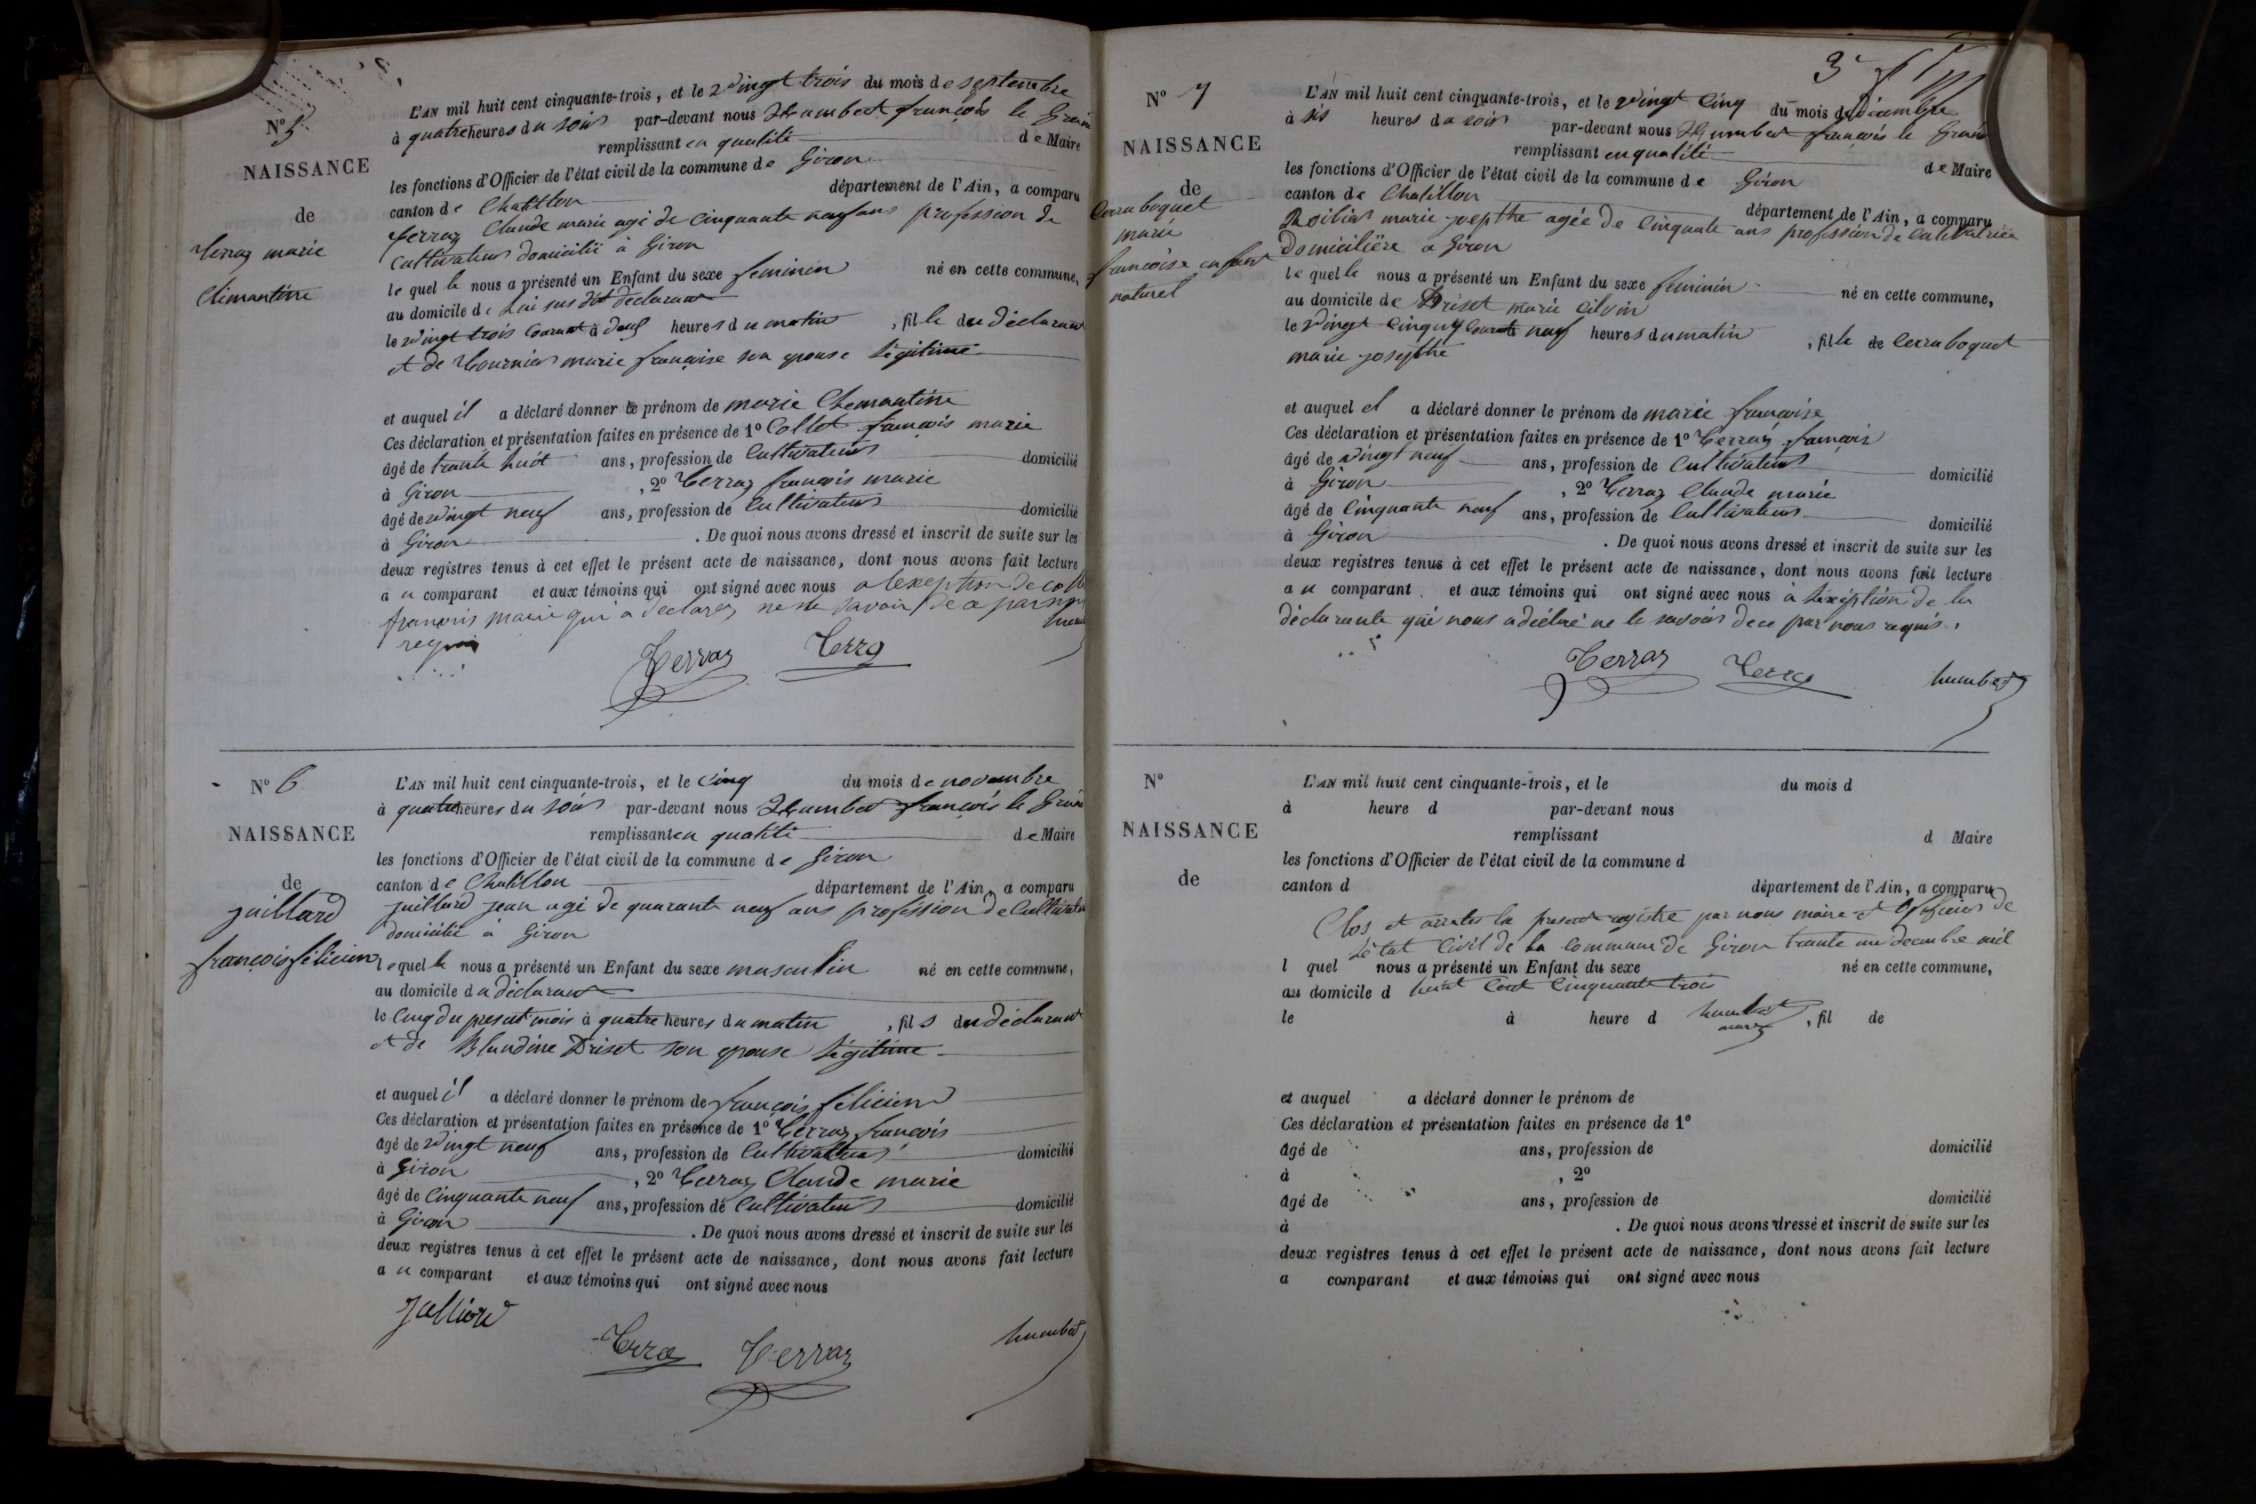 Nº 5
NAISSANCE
de
Terraz marie
Clémantine
L'AN mil huit cent cinquante-trois, et le vingt trois du mois de septembre
à quatre heures du soir par-devant nous Humbert françois le Grain
remplissant en qualité de Maire
les fonctions d'Officier de l'état civil de la commune de Giron
canton de Chatillon département de l'Ain, a comparu
Terraz Claude marie agé de cinquante neuf ans profession de
cultivateur domicilié à Giron
lequel le nous a présenté un Enfant du sexe feminin né en cette commune,
au domicile de Lui sus dit déclarant
le vingt trois courant à deux heures du matin, fille du déclarant
et de Tournier marie françoise son epouse légitime
et auquel il a déclaré donner le prénom de marie Clemantine
Ces déclaration et présentation faites en présence de 1º Collet françois marie
âgé de trante huit ans, profession de Cultivateur domicilié
à Giron, 2º Terraz françois marie
âgé de vingt neuf ans, profession de Cultivateur domicilié
à Giron. De quoi nous avons dressé et inscrit de suite sur les
deux registres tenus à cet effet le présent acte de naissance, dont nous avons fait lecture
au comparant et aux témoins qui ont signé avec nous a lexeption de
françois marie qui a déclarez ne le savoir de a par nous
requis
Terraz Terraz
Nº 6
NAISSANCE
de
juillard
françois félicien
L'AN mil huit cent cinquante-trois, et le cinq du mois de novembre
à quatre heures du soir par-devant nous Humbert françois le Grain
remplissant en qualité de Maire
les fonctions d'Officier de l'état civil de la commune de Giron
canton de Chatillon département de l'Ain, a comparu
juillard jean agé de quarante neuf ans profession de Cultivateur
domicilié à Giron
lequel le nous a présenté un Enfant du sexe masculin né en cette commune,
au domicile du déclarant
le cinq du present mois à quatre heures du matin, fils du déclarant
et de Blandine Driset son epouse légitime
et auquel il a déclaré donner le prénom de françois félicien
Ces déclaration et présentation faites en présence de 1º Terraz françois
âgé de vingt neuf ans, profession de Cultivateur domicilié
à Giron, 2º Terraz Claude marie
âgé de Cinquante neuf ans, profession de Cultivateur domicilié
à Giron. De quoi nous avons dressé et inscrit de suite sur les
deux registres tenus à cet effet le présent acte de naissance, dont nous avons fait lecture
au comparant et aux témoins qui ont signé avec nous
Julliard
Terraz Terraz humbert
Nº 7
NAISSANCE
de
Cerraboquet
marie
francoise enfant
naturel
L'AN mil huit cent cinquante-trois, et le vingt cinq du mois de décembre
à six heures du soir par-devant nous Humbert françois le Grain
remplissant en qualité de Maire
les fonctions d'Officier de l'état civil de la commune de Giron
canton de Chatillon département de l'Ain, a comparu
marie josepthe agée de Cinquante ans profession de Cultivatrice
Domiciliére à Giron
lequel le nous a présenté un Enfant du sexe feminin né en cette commune,
au domicile de Driset marie
le vingt cinq courant neuf heures du matin, fille de Cerraboquet
marie josepthe
et auquel el a déclaré donner le prénom de marie françoise
Ces déclaration et présentation faites en présence de 1º Terraz françois
âgé de vingt neuf ans, profession de Cultivateur domicilié
à Giron, 2º Terraz Claude marie
âgé de Cinquante neuf ans, profession de Cultivateur domicilié
à Giron. De quoi nous avons dressé et inscrit de suite sur les
deux registres tenus à cet effet le présent acte de naissance, dont nous avons fait lecture
au comparant et aux témoins qui ont signé avec nous à lexéption de la
déclarante qui nous a déclaré ne le savoir de ce par nous requis.
Terraz Terraz humbert
Nº
NAISSANCE
de
L'AN mil huit cent cinquante-trois, et le du mois d
à heure d par-devant nous
remplissant d Maire
les fonctions d'Officier de l'état civil de la commune d
canton d département de l'Ain, a comparu
Clos et arreter le present registre par nous maire et Officier de
létat Civil de la commune de Giron trante un decembre mil
l quel nous a présenté un Enfant du sexe né en cette commune,
au domicile d huit Cent Cinquante trois
le à heure d, fil de
humbert
maire
et auquel a déclaré donner le prénom de
Ces déclaration et présentation faites en présence de 1º
âgé de ans, profession de domicilié
à, 2º
âgé de ans, profession de domicilié
à. De quoi nous avons dressé et inscrit de suite sur les
deux registres tenus à cet effet le présent acte de naissance, dont nous avons fait lecture
a comparant et aux témoins qui ont signé avec nous